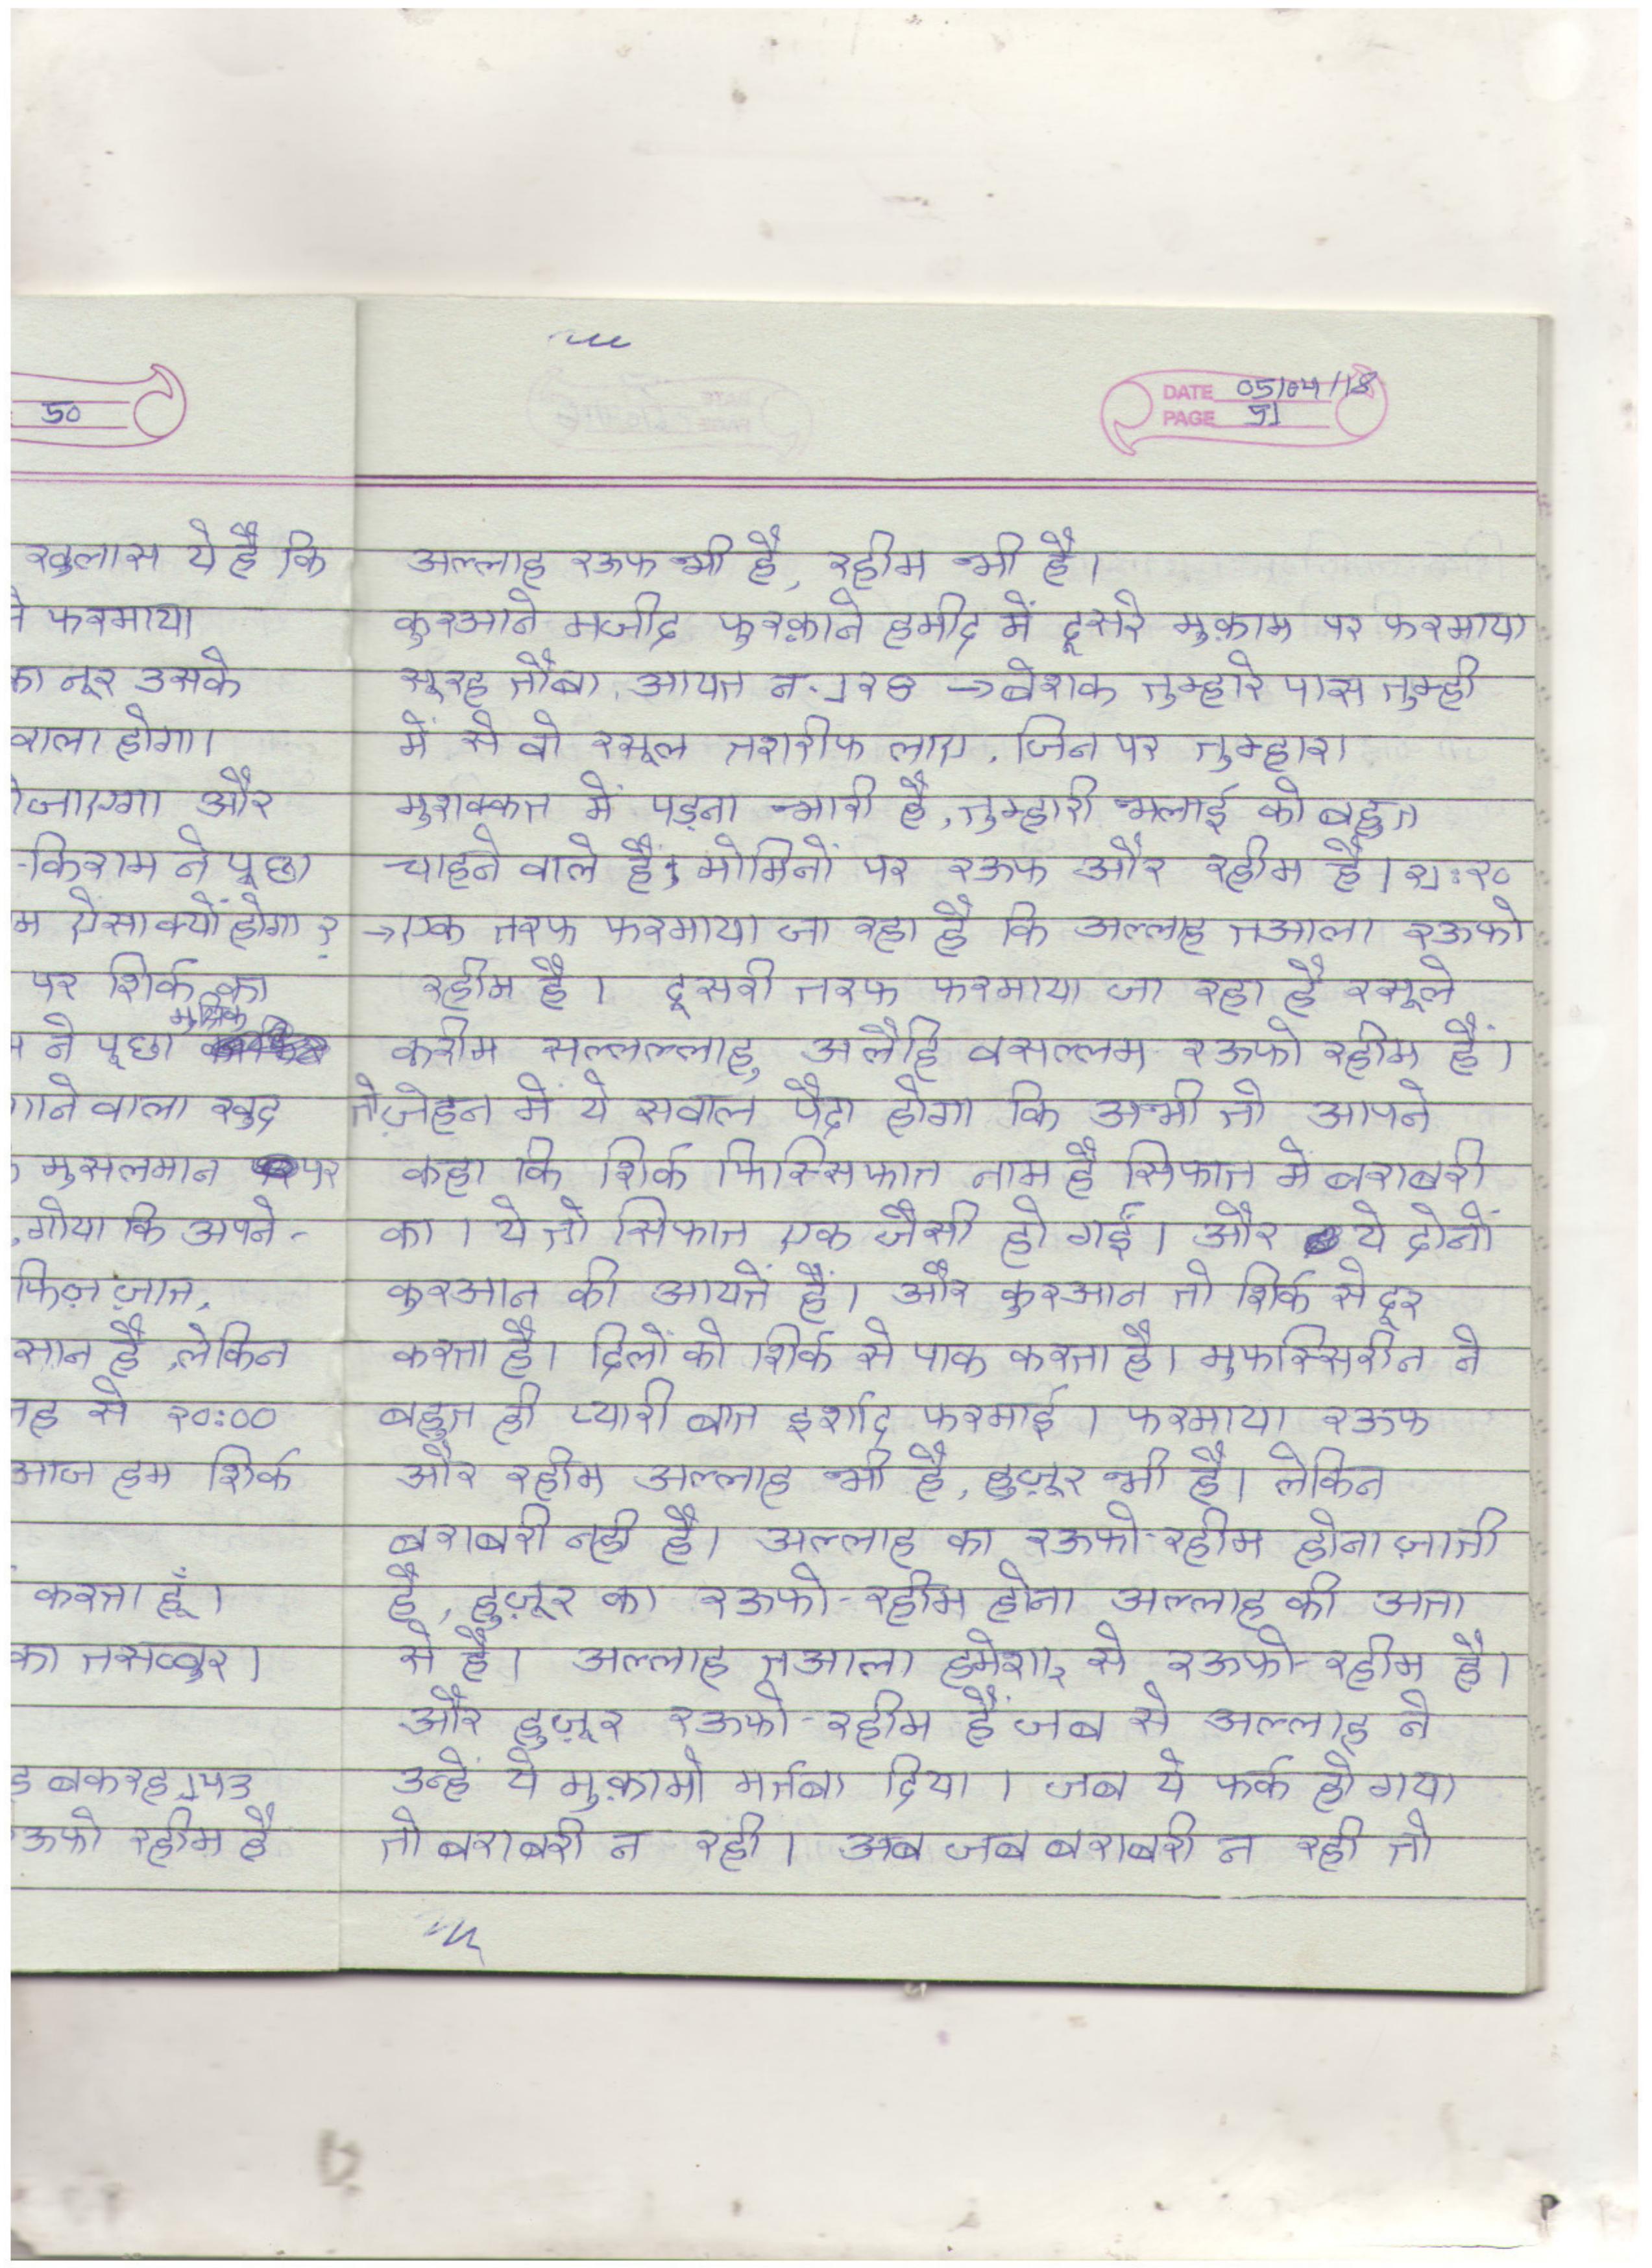 50
खुलास ये है कि
ने फरमाया
का नूर उसके
वाला होगा।
जाएगा और
-किराम ने पूछा
म ऐसा क्यों होगा?
पर शिर्क का
मुश्रिक
ने पूछा
गाने वाला खुद
मुसलमान पर
,गोया कि अपने-
फिज़ ज़ात,
सान है ,लेकिन
तह से २०:००
आज हम शिर्क
करता हूँ।
का तसव्वुर।
बकरह १४३
ऊफो रहीम है
DATE 05/04/18
PAGE 51
अल्लाह रऊफ भी है, रहीम भी है।
कुरआने मजीद फुरक़ाने हमीद में दूसरे मुक़ाम पर फरमाया
सूरह तौबा, आयत न. १२८ → बेशक तुम्हारे पास तुम्ही
में से वो रसूल तशरीफ लाए, जिन पर तुम्हारा
मुशक्कत में पड़ना भारी है, तुम्हारी भलाई को बहुत
चाहने वाले हैं, मोमिनों पर रऊफ और रहीम है। २१:२०
→ एक तरफ फरमाया जा रहा है कि अल्लाह तआला रऊफो
रहीम है। दूसरी तरफ फरमाया जा रहा है रसूले
करीम सल्लल्लाहु अलैहि वसल्लम रऊफो रहीम हैं।
तो ज़ेहन में ये सवाल पैदा होगा कि अभी तो आपने
कहा कि शिर्क फिस्सिफात नाम है सिफात में बराबरी
का। ये तो सिफात एक जैसी हो गईं। और ये दोनों
कुरआन की आयतें हैं। और कुरआन तो शिर्क से दूर
करता है। दिलों को शिर्क से पाक करता है। मुफस्सिरीन ने
बहुत ही प्यारी बात इर्शाद फरमाई। फरमाया रऊफ
और रहीम अल्लाह भी है, हुज़ूर भी है। लेकिन
बराबरी नही है। अल्लाह का रऊफो-रहीम होना ज़ाती
है, हुज़ूर का रऊफो-रहीम होना अल्लाह की अता
से है। अल्लाह तआला हमेशा से रऊफो-रहीम है।
और हुज़ूर रऊफो-रहीम हैं जब से अल्लाह ने
उन्हें ये मुक़ामो मर्तबा दिया। जब ये फर्क हो गया
तो बराबरी न रही। अब जब बराबरी न रही तो